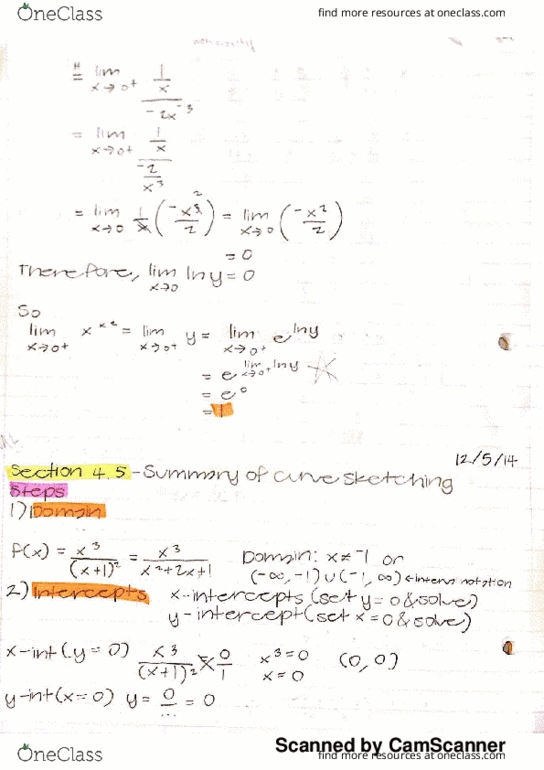 OneClass
find more resources at oneclass.com
H
= lim x→0+ (1/x)/(-2x^-3)
= lim x→0+ (1/x)/(-2/x^3)
= lim x→0 1/x (-x^3/2)^2 = lim x→0 (-x^2/2)
= 0
Therefore, lim x→0 ln y = 0
So
lim x→0+ x^x^2 = lim x→0+ y = lim x→0+ e^ln y
= e^lim x→0+ ln y
= e^0
= 1
12/5/14
Section 4.5 - Summary of curve sketching
Steps
1) Domain
f(x) = x^3/(x+1)^2 = x^3/(x^2+2x+1) Domain: x≠-1 or
(-∞,-1)∪(-1,∞) ← interval notation
2) Intercepts x-intercepts (set y=0 & solve)
y-intercept (set x=0 & solve)
x-int (y=0) x^3/(x+1)^2 = 0/1 x^3=0 (0,0)
x=0
y-int (x=0) y = 0/... = 0
OneClass
Scanned by CamScanner
find more resources at oneclass.com